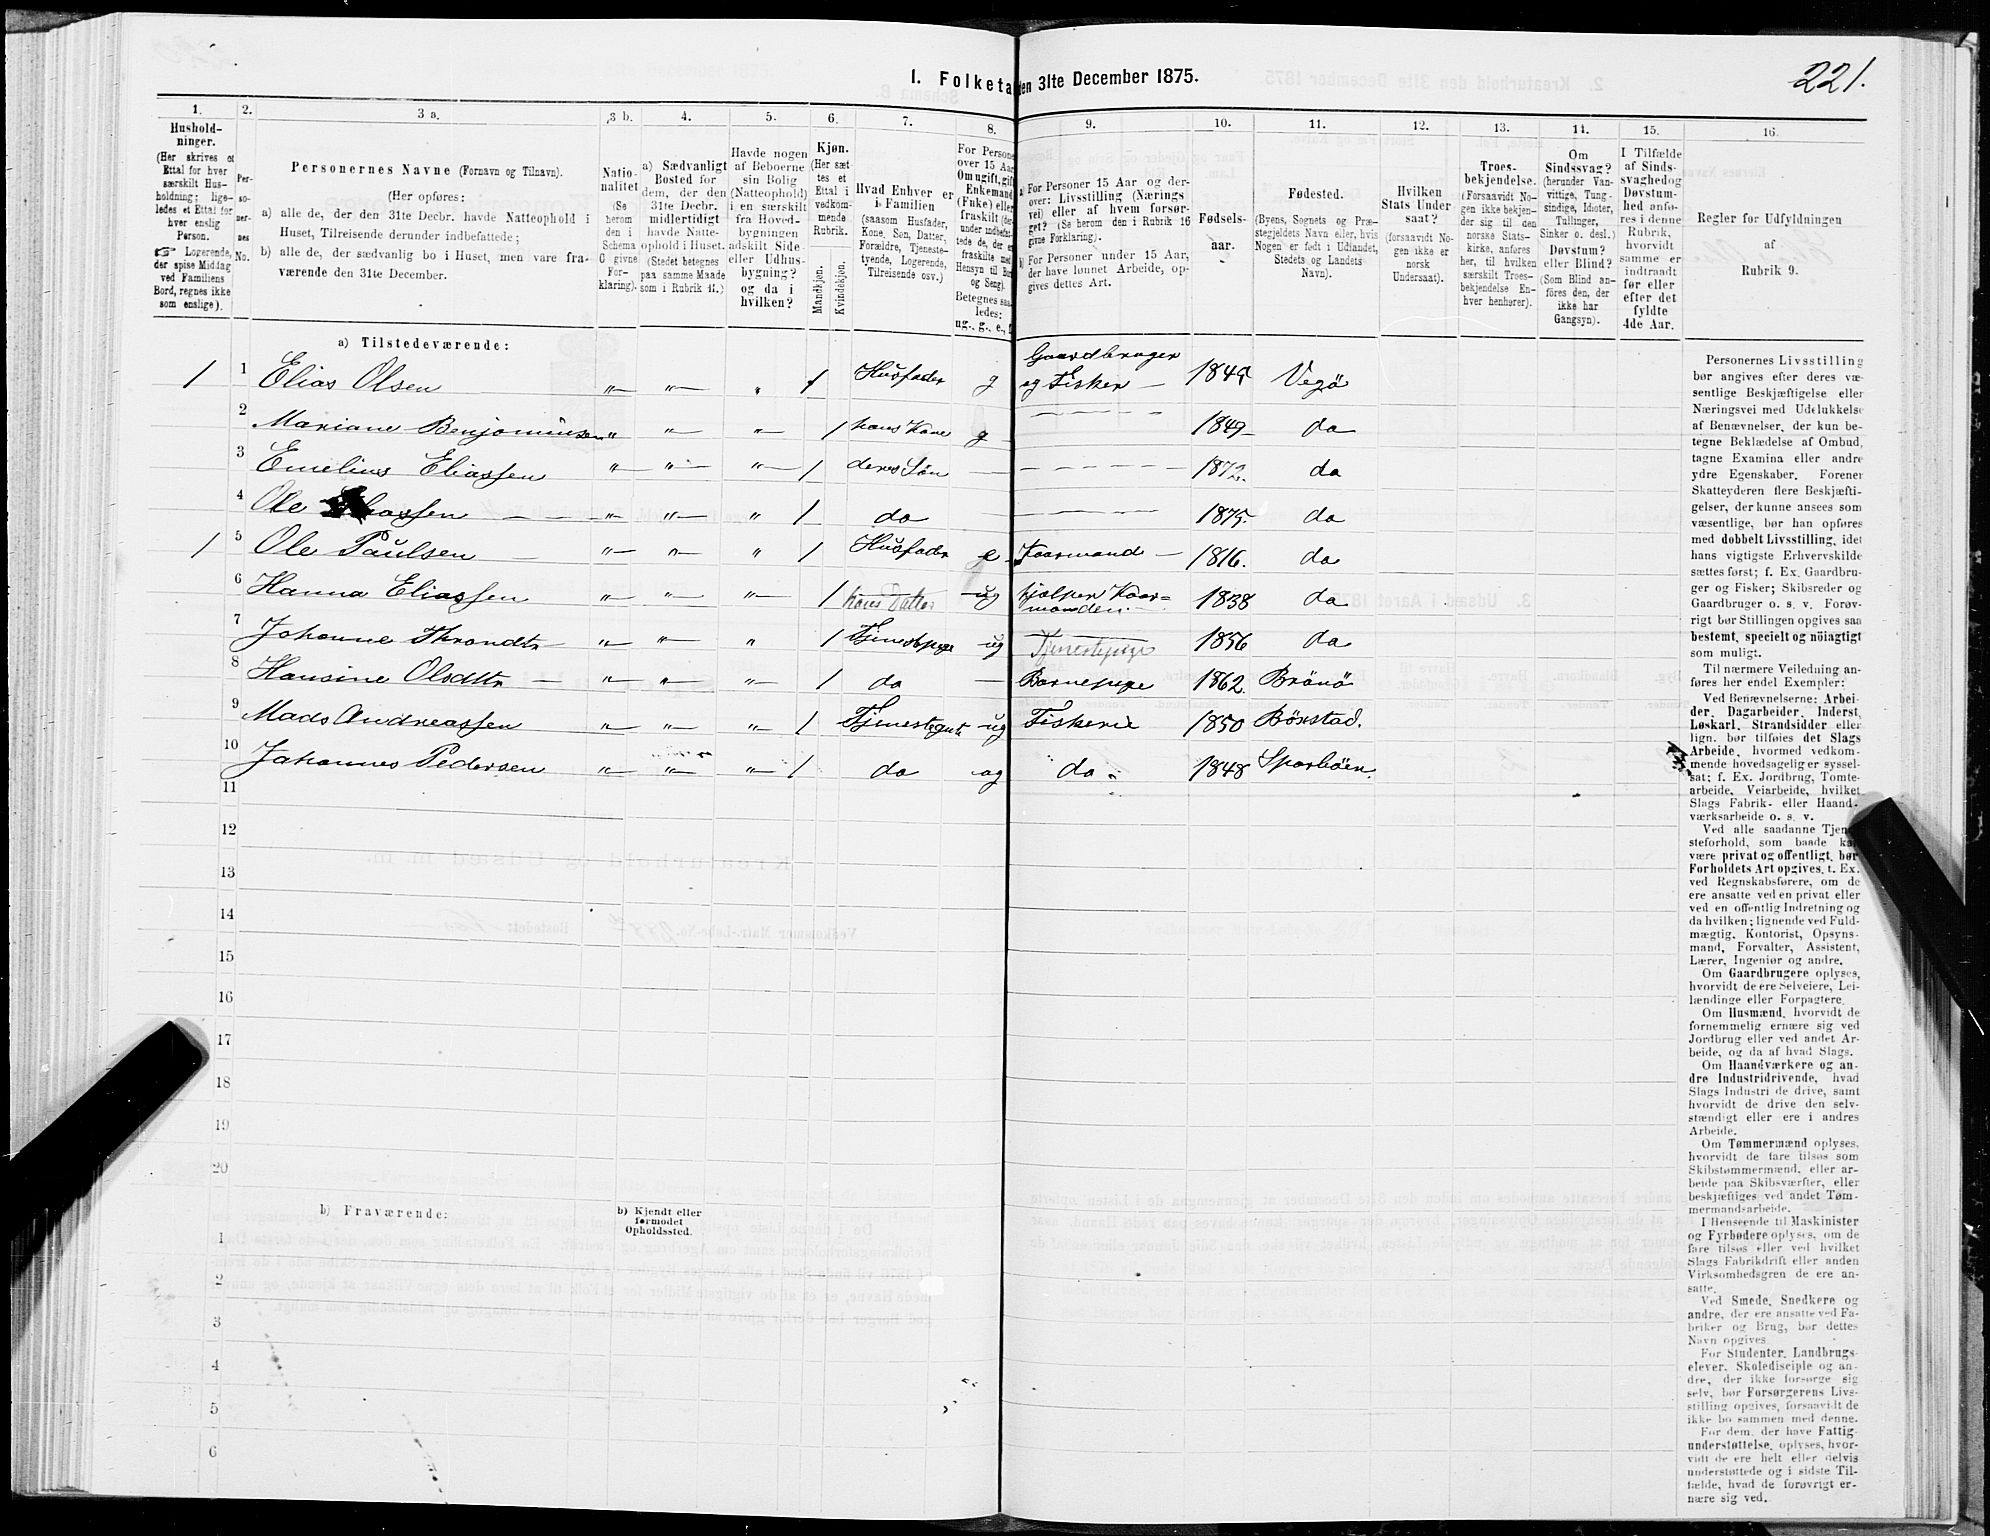 221.
I. Folketa den 31te December 1875.
1. 2. 3 a. 3 b. 4. 5. 6. 7. 8. 9. 10. 11. 12. 13. 14. 15. 16.
Husholdninger. (Her skrives et Ettal for hver særskilt Husholdning; ligeledes et Ettal for hver enslig Person. Logerende, der spise Middag ved Familiens Bord, regnes ikke som enslige).
Personernes No.
Personernes Navne (Fornavn og Tilnavn).
(Her opføres:
a) alle de, der den 31te Decbr. havde Natteophold i Huset, Tilreisende derunder indbefattede;
b) alle de, der sædvanlig bo i Huset, men vare fraværende den 31te December.
Nationalitet (Se herom den i Schema C givne Forklaring).
a) Sædvanligt Bosted for dem, der den 31te Decbr. midlertidigt havde Natteophold i Huset. (Stedet betegnes paa samme Maade som i Rubrik 11.)
Havde nogen af Beboerne sin Bolig (Natteophold) i en særskilt fra Hovedbygningen adskilt Side- eller Udhusbygning? og da i hvilken?
Kjøn. (Her sættes et Ettal i vedkommende Rubrik.
Mandkjøn. Kvindekjøn.
Hvad Enhver er i Familien (saasom Husfader, Kone, Søn, Datter, Forældre, Tjenestetyende, Logerende, Tilreisende osv.)
For Persone over 15 Aar Om ugift, gift Enkemand (Enke) eller fraskilt
Betegnes saaledes: ug., g., e.,
a) For Personer 15 Aar og derover: Livsstilling (Næringsvei) eller af hvem forsørget? (Se herom den i Rubrik 16 givne Forklaring).
b) For Personer under 15 Aar, der have lønnet Arbeide, opgives dettes Art.
Fødselsaar.
Fødested.
(Byens, Sognets og Præstegjeldets Navn eller, hvis Nogen er født i Udlandet, Stedets og Landets Navn).
Hvilken Stats Undersaat? (forsaavidt Nogen ikke er norsk Undersaat).
Troesbekjendelse. (Forsaavidt Nogen ikke bekjender sig til den norske Statskirke, anføres her, til hvilken særskilt Troesbekjendelse Enhver henhører).
Om Sindssvag? (herunder Vanvittige, Tungsindige, Idioter, Tullinger, Sinker o. desl.) Døvstum? eller Blind? (Som Blind anføres den, der ikke har Gangsyn).
I Tilfælde af Sindssvaghed og Døvstumhed anføres i denne Rubrik, hvorvidt samme er indtraadt før eller efter det fyldte 4de Aar.
Regler for Udfyldningen af Rubrik 9.
a) Tilstedeværende:
1 1 Elias Olsen „ „ „ 1 Husfader g Gaardbruger og Fisker 1845 Vegö
2 Mariane Benjaminsen „ „ „ 1 hans Kone g 1849 da
3 Emelius Eliassen „ „ „ 1 deres Sön 1872. da
4 Ole Eliassen „ „ „ 1 da 1875. da
1 5 Ole Paulsen „ „ „ 1 Husfader e Kaarmand 1816. da
6 Hanna Eliassen „ „ „ 1 hans Datter ug hjælper Kaarmanden 1838 da
7 Johanne Throndtr „ „ „ 1 Tjenestepige ug Tjenestepige 1856 da
8 Hansine Olsdtr „ „ „ 1 da Barnepige 1862 Brönö
9 Mads Andreassen „ „ „ 1 Tjenestegut ug Fiskerie 1850 Börstad.
10 Johannes Pedersen „ „ „ 1 da ug da 1848 Sparböen
11
12
13
14
15
16
17
18
19
20
b) Fraværende:
b) Kjendt eller formodet Opholdssted.
1
2
3
4
5
6
Personernes Livsstilling
bør angives efter deres væ-
sentlige Beskjæftigelse eller
Næringsvei med Udelukkelse
af Benævnelser, der kun be-
tegne Beklædelse af Ombud,
tagne Examina eller andre
ydre Egenskaber. Forener
Skatteyderen flere Beskjæfti-
gelser, der kunne ansees som
væsentlige, bør han opføres
med dobbelt Livsstilling, idet
hans vigtigste Erhvervskilde
sættes først; f. Ex. Gaardbru-
ger og Fisker; Skibsreder og
Gaardbruger o. s. v. Forøv-
rigt bør Stillingen opgives saa
bestemt, specielt og nöiagtigt
som muligt.
Til nærmere Veiledning an-
føres her endel Exempler:
Ved Benævnelserne: Arbei-
der, Dagarbeider, Inderst,
Løskarl, Strandsidder eller
lign. bør tilføies det Slags
Arbeide, hvormed vedkom-
mende hovedsagelig er syssel-
sat; f. Ex. Jordbrug, Tomte-
arbeide, Veiarbeide, hvilket
Slags Fabrik- eller Haand-
værksarbeide o. s. v.
Ved alle saadanne Tjene-
steforhold, som baade kan
være privat og offentligt, bør
Forholdets Art opgives, f. Ex.
ved Regnskabsførere, om de
ere ansatte ved en privat eller
ved en offentlig Indretning og
da hvilken; lignende ved Fuld-
mægtig, Kontorist, Opsyns-
mand, Forvalter, Assistent,
Lærer, Ingeniør og andre.
Om Gaardbrugere oplyses,
hvorvidt de ere Selveiere, Lei-
lændinge eller Forpagtere.
Om Husmænd, hvorvidt de
fornemmelig ernære sig ved
Jordbrug eller ved andet Ar-
beide, og da af hvad Slags.
Om Haandværkere og an-
dre Industridrivende, hvad
Slags Industri de drive, samt
hvorvidt de drive den selv-
stændigt eller ere i andres
Arbeide.
Om Tømmermænd oplyses,
hvorvidt de fare tilsøs som
Skibstømmermænd, eller ar-
beide paa Skibsværfter, eller
beskjæftiges ved andet Tøm-
mermandsarbeide.
I Henseende til Maskinister
og Fyrbødere oplyses, om de
fare tilsøs eller ved hvilket
Slags Fabrikdrift eller anden
Virksomhedsgren de ere an-
satte.
Ved Smede, Snedkere og
andre, der ere ansatte ved Fa-
briker og Brug, bør dettes
Navn opgives.
For Studenter, Landbrugs-
elever, Skoledisciple og an-
dre, der ikke forsørge sig
selv, bør Forsørgerens Livs-
stilling opgives, forsaavidt de
ikke bo sammen med denne.
For dem, der have Fattig-
understøttelse, oplyses, hvor-
vidt de ere helt eller delvis
understøttede og i sidste Til-
fælde, hvad de forøvrigt er-
nære sig ved.